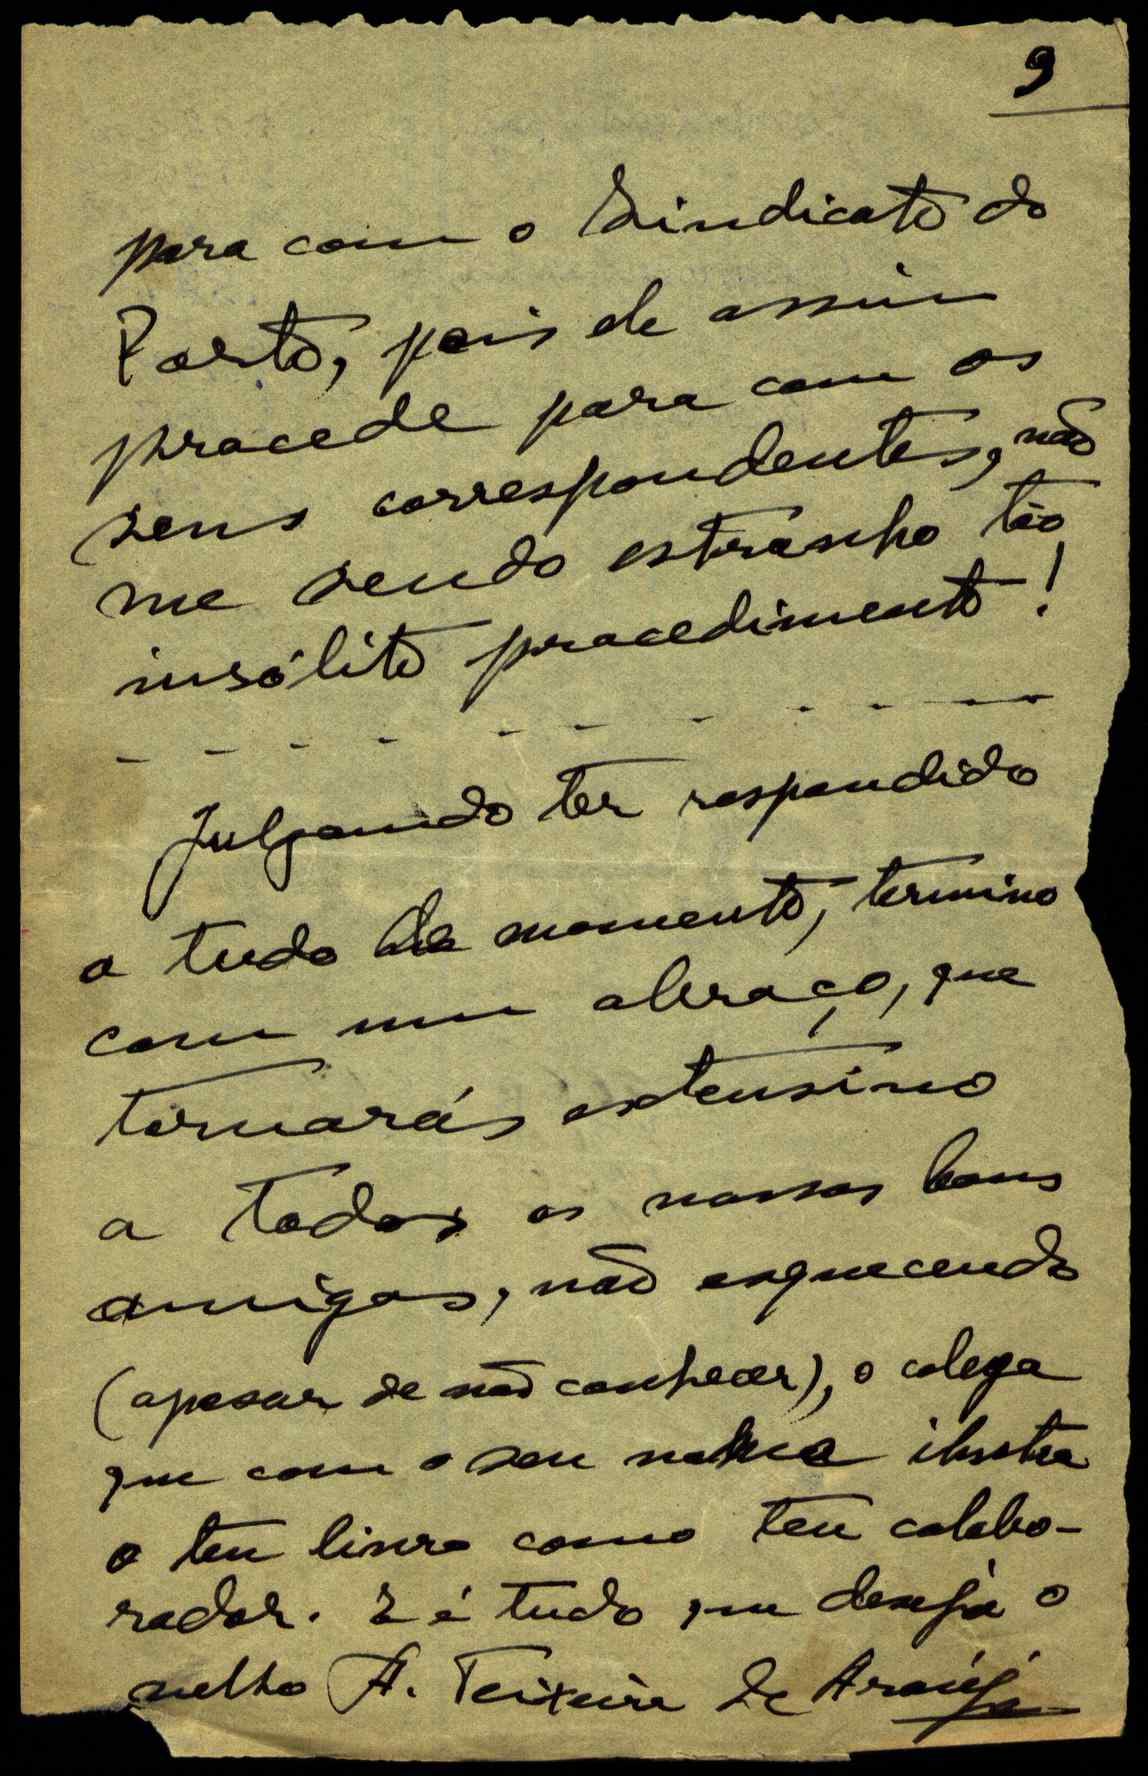 9
para com o Sindicato do
Porto, pois ele assim
procede para com os
seus correspondentes, não
me sendo estranho tão
insólito procedimento!
Julgando ter respondido
a tudo de momento, termino
com um abraço, que
tornarás extensivo
a todos os nossos bons
amigos, não esquecendo
(apesar de não conhecer), o colega
que com o seu nome ilustra
o teu livro como teu colabo-
rador. E é tudo que deseja o
velho A. Teixeira de Araújo